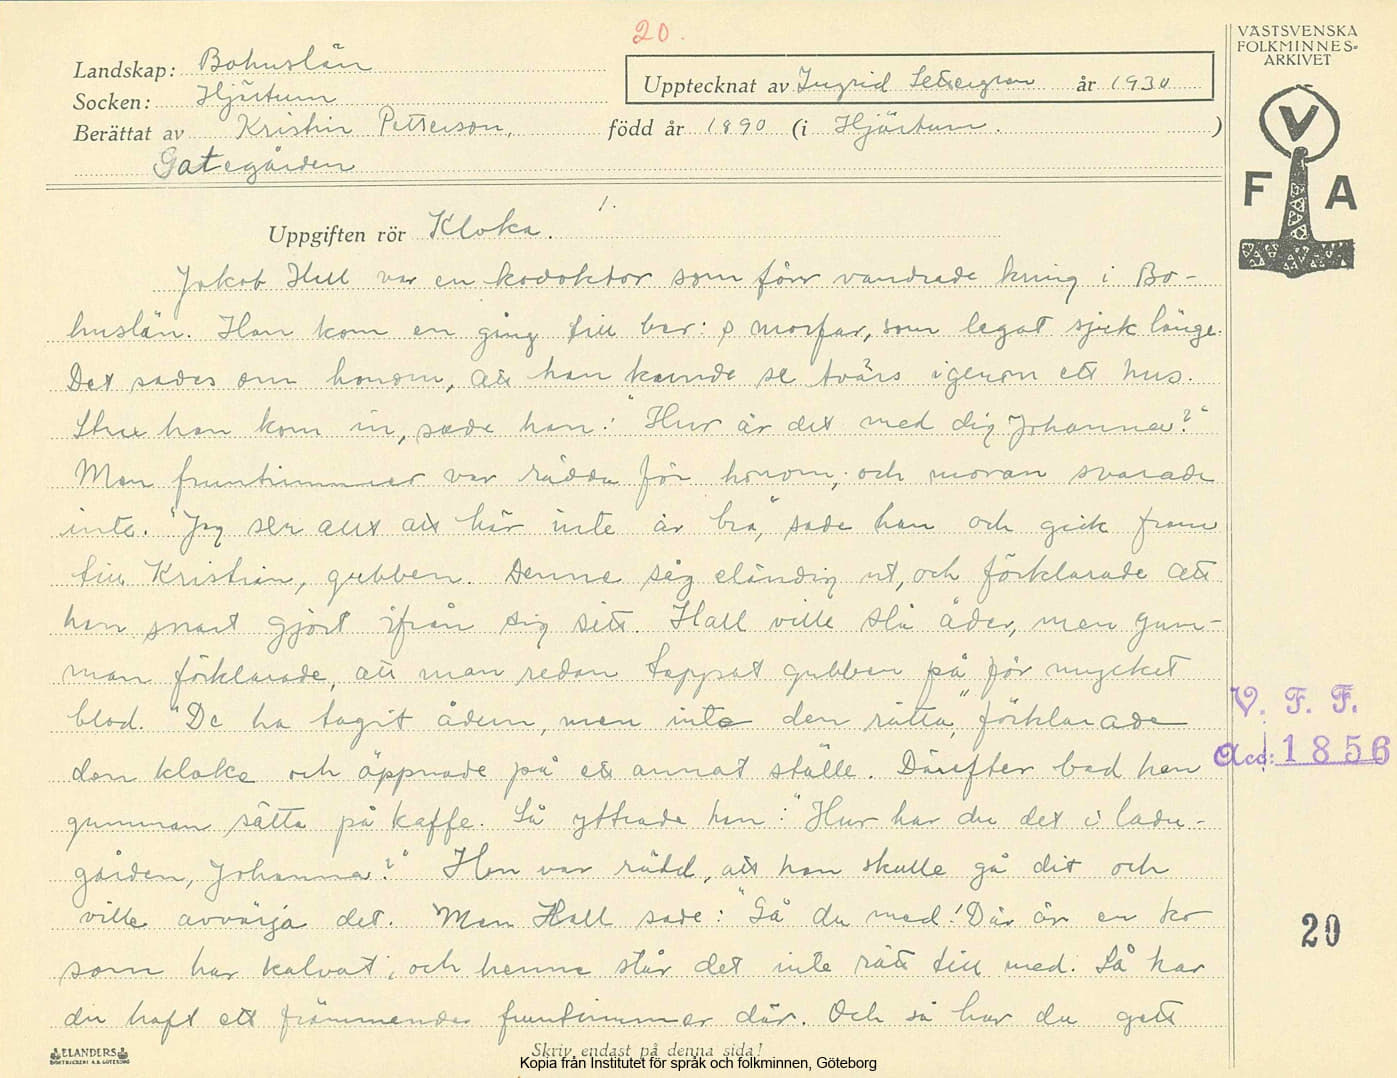 20.
VÄSTSVENSKA
FOLKMINNES-
ARKIVET
V
F A
Landskap: Bohuslän
Upptecknat av Ingrid år 1930
Socken: Hjärtum
Berättat av Kristin Petterson, född år 1890 (i Hjärtum. )
Gategården
1.
Uppgiften rör Kloka.
Jakob Hall var en kodoktor som förr vandrade kring i Bo-
huslän. Han kom en gång till ber:s morfar, som legat sjuk länge.
Det sades om honom, att han kunde se tvärs igenom ett hus.
Strax han kom in, sade han: "Hur är det med dig Johanna?"
Men fruntimmer var rädda för honom, och moran svarade
inte. "Jag ser allt att här inte är bra," sade han och gick fram
till Kristian, gubben. Denne såg eländig ut, och förklarade att
han snart gjort ifrån sig sitt. Hall ville slå åder, men gum-
man förklarade, att man redan tappat gubben på för mycket
blod. "De ha tagit ådern, men inte den rätta," förklarade
den kloke och öppnade på ett annat ställe. Därefter bad han
gumman sätta på kaffe. Så yttrade han: "Hur har du det i ladu-
gården, Johanna?" Hon var rädd, att han skulle gå dit och
ville avvärja det. Men Hall sade: "Gå du med! Där är en ko
som har kalvat, och henne står det inte rätt till med. Så har
du haft ett främmande fruntimmer där. Och så har du gett
V. F. F.
Acc: 1856
20
ELANDERS
BOKTRYCKERI A.B. GÖTEBORG
Skriv endast på denna sida!
Kopia från Institutet för språk och folkminnen, Göteborg